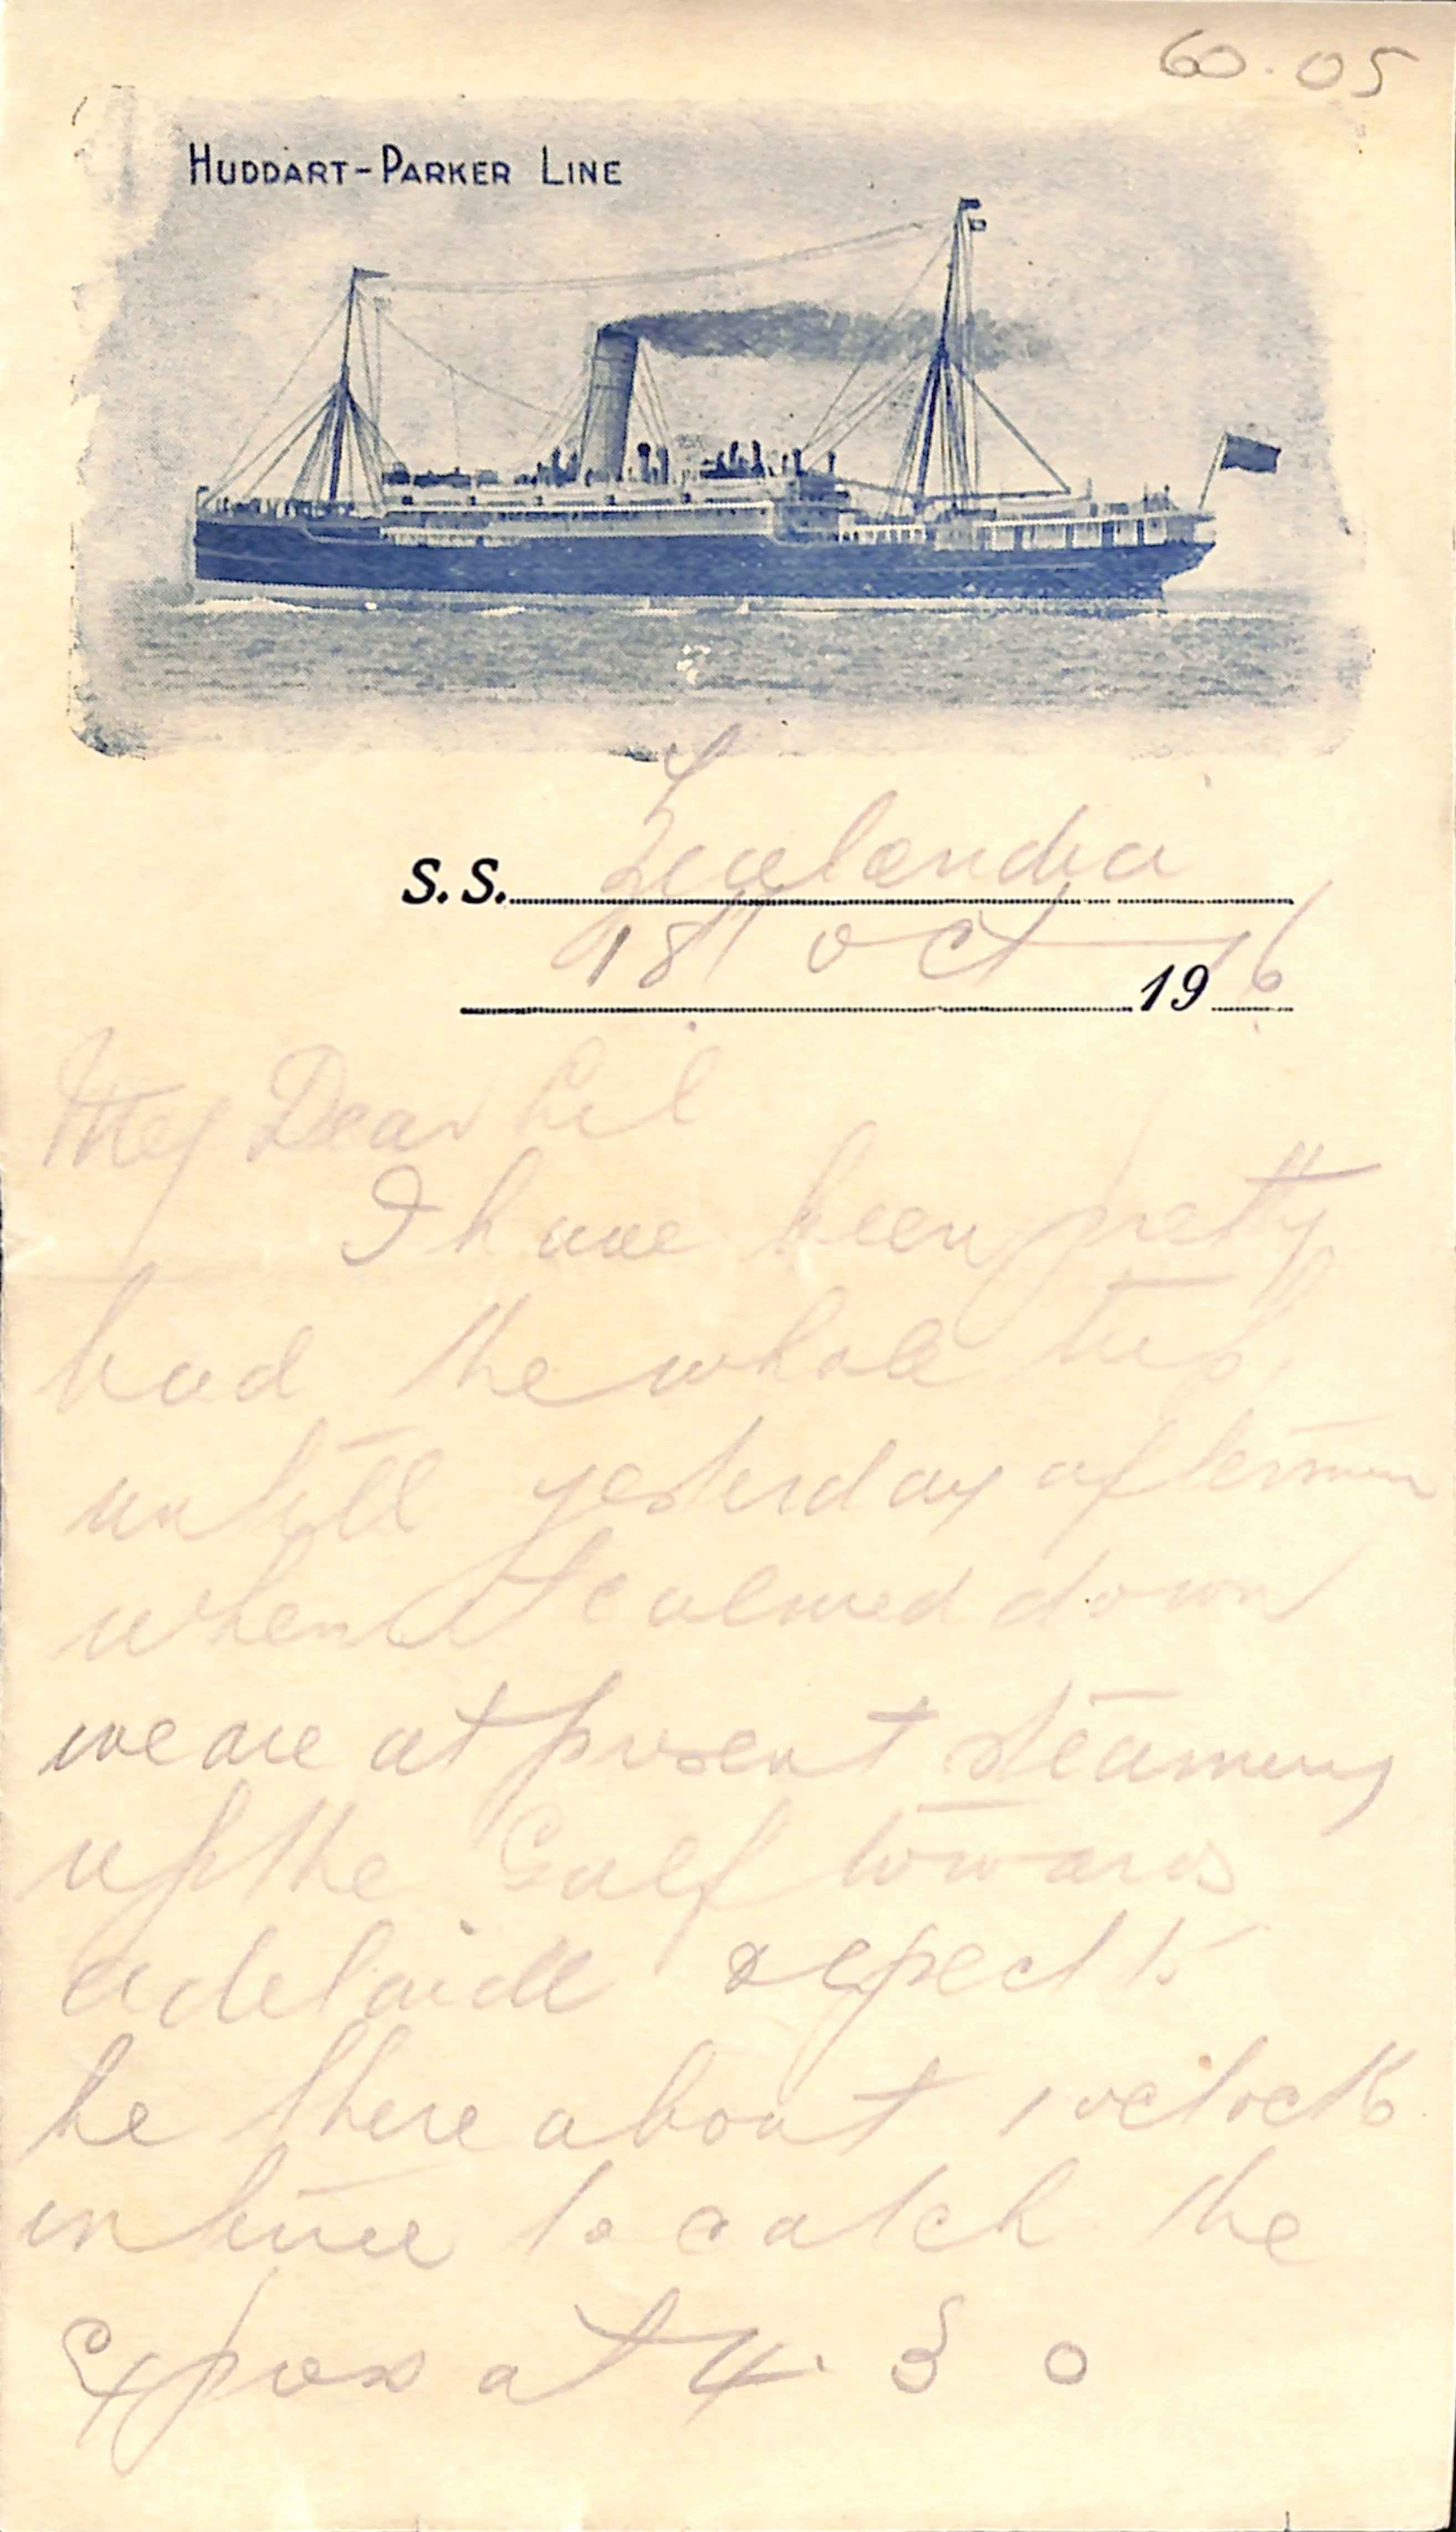 60.05
HUDDART-PARKER LINE
S.S. Zealandia
18 Oct 1916
My Dear Lil
I have been pretty
bad the whole trip
untill yesterday afternoon
when it calmed down
we are at present steaming
up the Gulf towards
adelaide expect to
be there about 1 oclock
in time to catch the
Express at 4.30